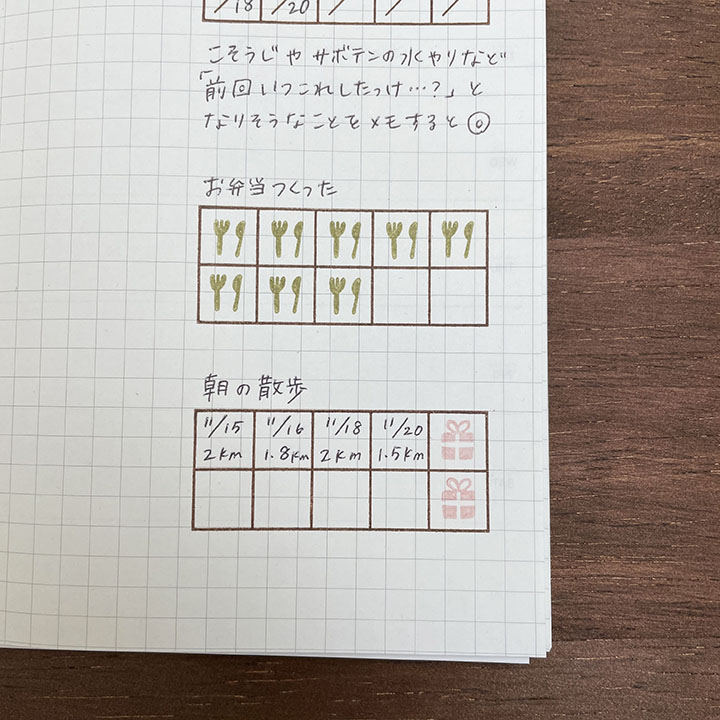 /18 /20 / / /
こそうじや サボテンの水やりなど
「前回いつこれしたっけ…?」と
なりそうなことをメモすると◎
お弁当つくった
朝の散歩
11/15 11/16 11/18 11/20
2km 1.8km 2km 1.5km